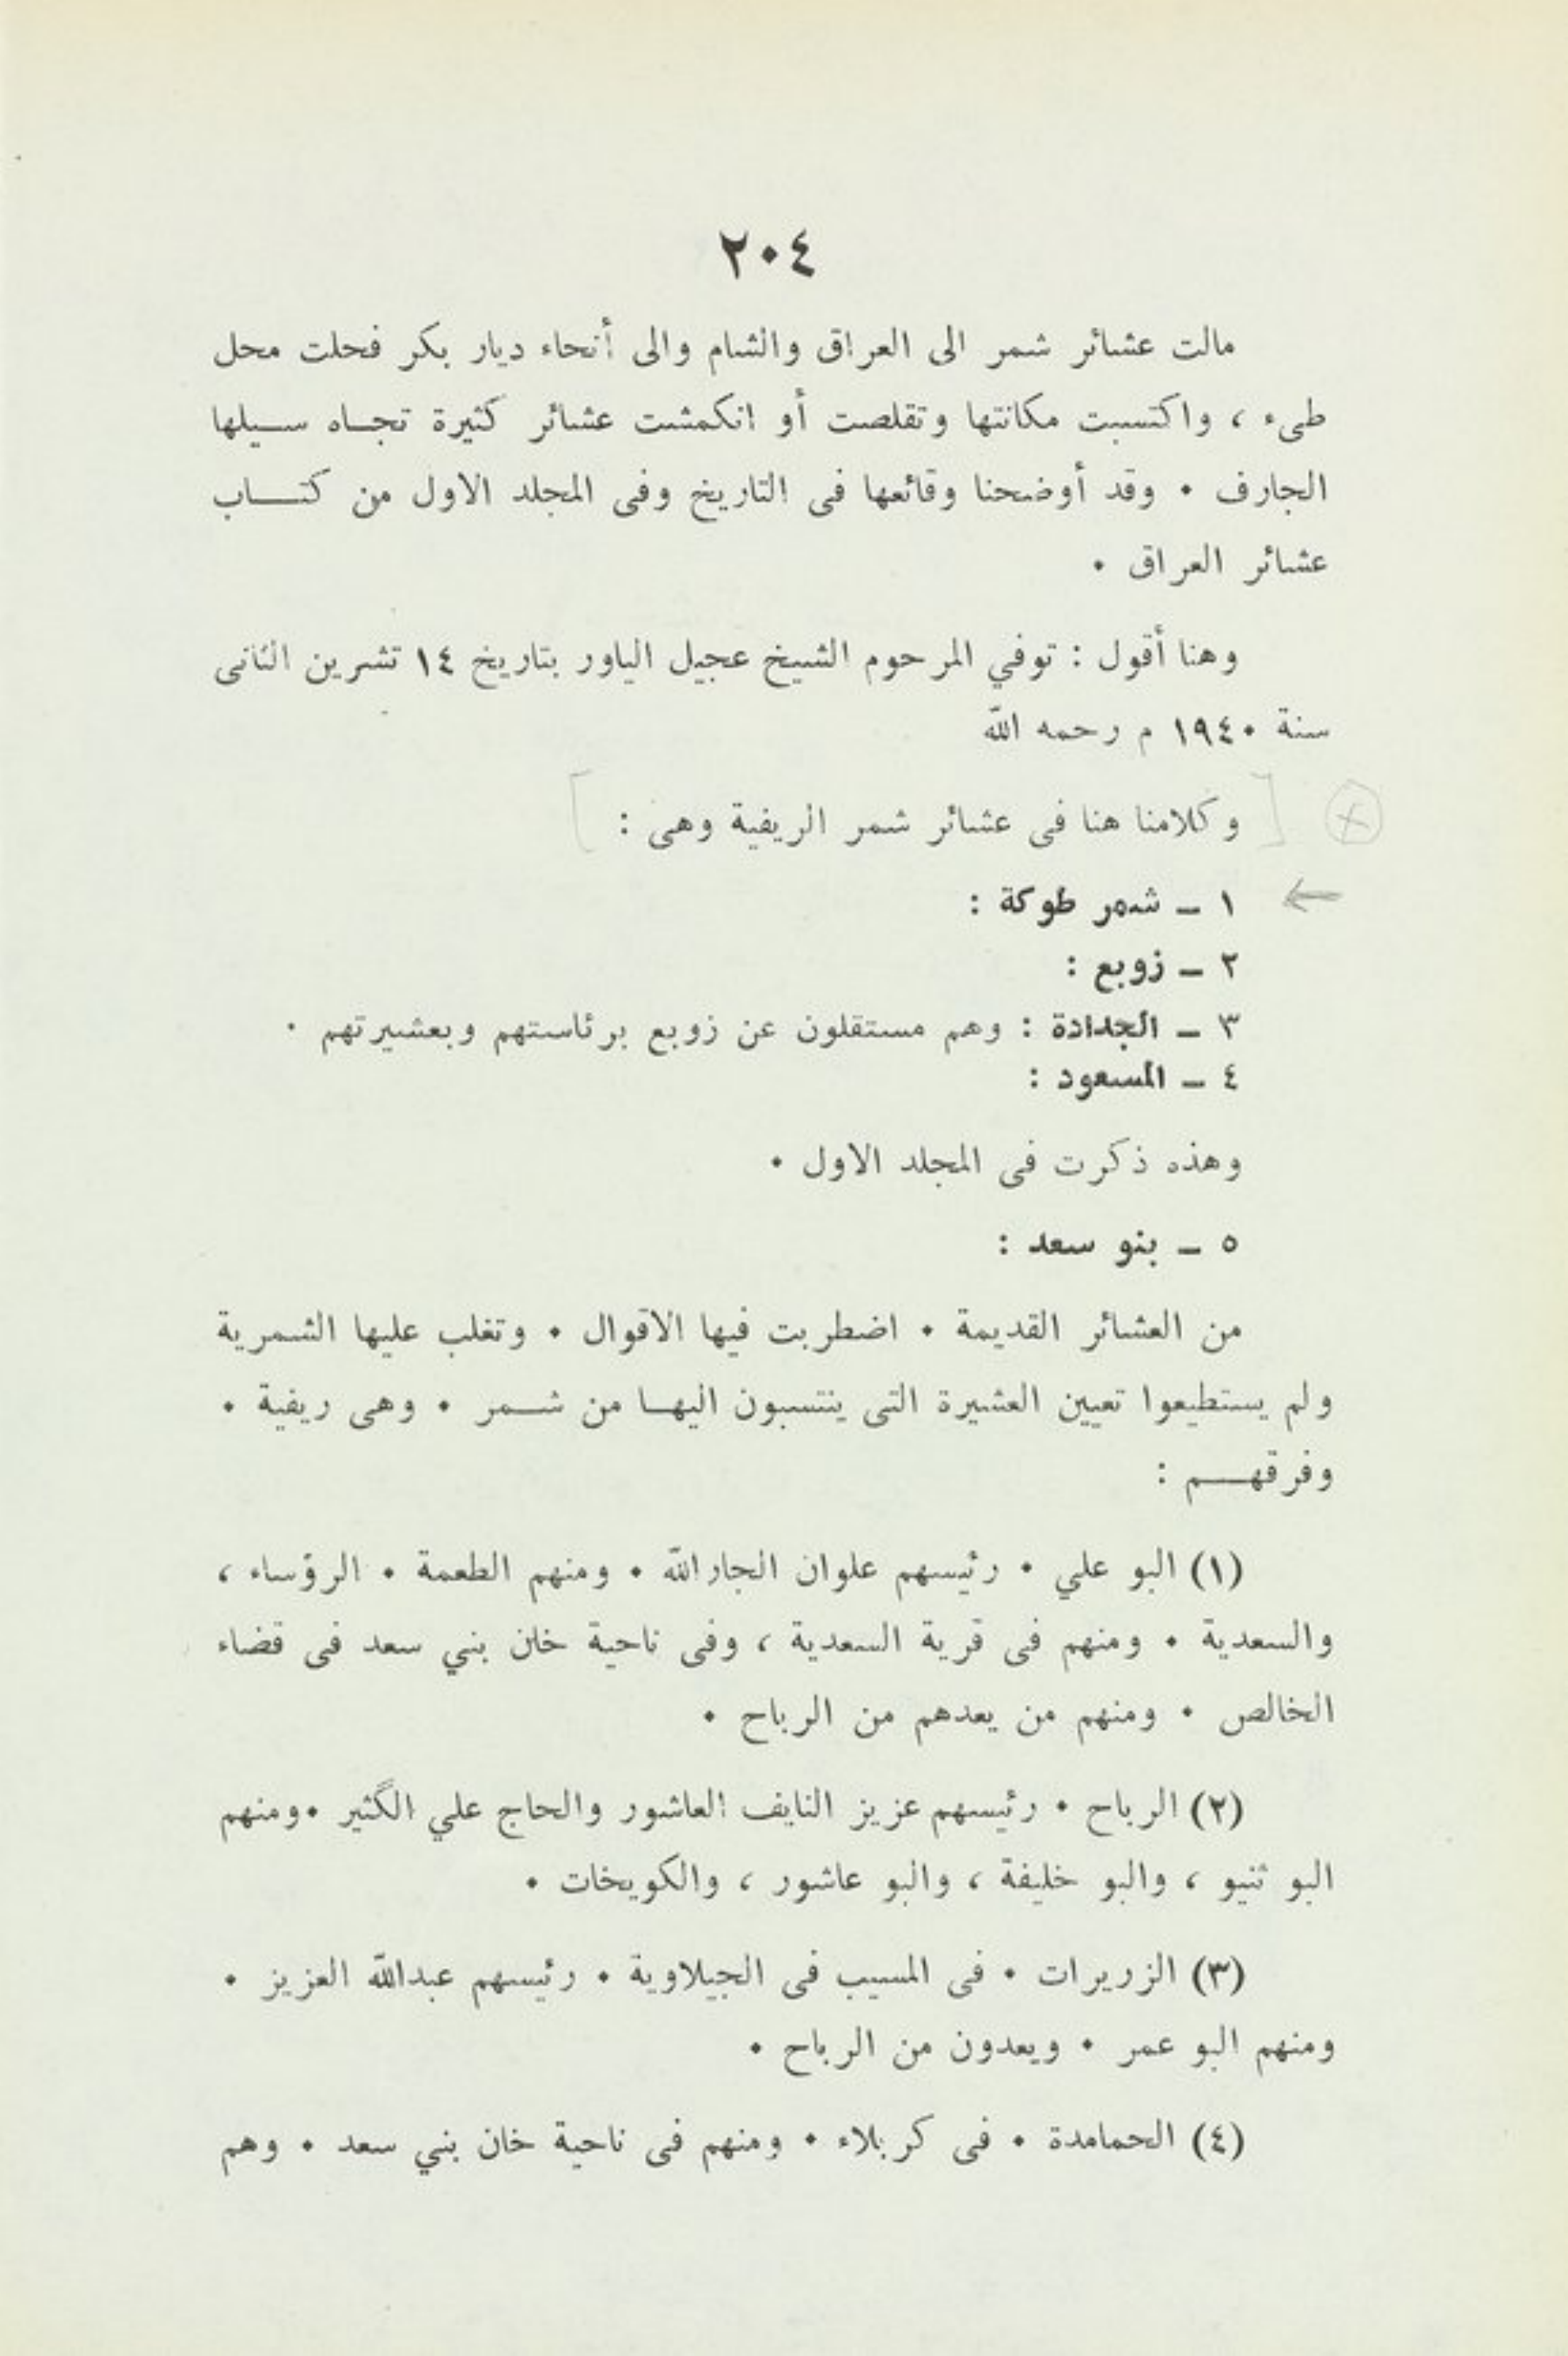 ٢٠٤
مالت عشائر شمر الى العراق والشام والى أنحاء ديار بكر فحلت محل
طىء ، واكتسبت مكانتها وتقلصت أو انكمشت عشائر كثيرة تجاه سيلها
الجارف ٠ وقد أوضحنا وقائعها فى التاريخ وفى المجلد الاول من كتاب
عشائر العراق ٠
وهنا أقول : توفي المرحوم الشيخ عجيل الياور بتاريخ ١٤ تشرين الثانى
سنة ١٩٤٠ م رحمه الله
وكلامنا هنا فى عشائر شمر الريفية وهى :
١ ــ شمر طوكة :
٢ ــ زوبع :
٣ ــ الجدادة : وهم مستقلون عن زوبع برئاستهم وبعشيرتهم ٠
٤ ــ المسعود :
وهذه ذكرت فى المجلد الاول ٠
٥ ــ بنو سعد :
من العشائر القديمة ٠ اضطربت فيها الاقوال ٠ وتغلب عليها الشمرية
ولم يستطيعوا تعيين العشيرة التى ينتسبون اليها من شمر ٠ وهى ريفية ٠
وفرقهم :
(١) البو علي ٠ رئيسهم علوان الجارالله ٠ ومنهم الطعمة ٠ الرؤساء ،
والسعدية ٠ ومنهم فى قرية السعدية ، وفى ناحية خان بني سعد فى قضاء
الخالص ٠ ومنهم من يعدهم من الرباح ٠
(٢) الرباح ٠ رئيسهم عزيز النايف العاشور والحاج علي الگثير ٠ومنهم
البو ثنيو ، والبو خليفة ، والبو عاشور ، والكويخات ٠
(٣) الزريرات ٠ فى المسيب فى الجيلاوية ٠ رئيسهم عبدالله العزيز ٠
ومنهم البو عمر ٠ ويعدون من الرباح ٠
(٤) الحمامدة ٠ فى كربلاء ٠ ومنهم فى ناحية خان بني سعد ٠ وهم